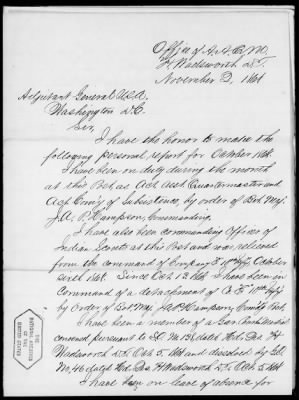 Office of A.A.Q.M.
Ft Wadsworth D.T.
November 2, 1868
Adjutant General U.S.A.
Washington D.C.
Sir,
I have the honor to make the
following personal report for October 1868.
I have been on duty during the month
at this Post as Act. Asst. Quartermaster and
Act. Comsy of Subsistence, by order of Bvt. Maj.
J.A.P. Hampson, Commanding.
I have also been commanding Officer of
Indian Scouts at this Post and was relieved
from the command of Company Infy October
1868. Since Oct. 1868 I have been in
Command of a detachment of Infy
by Order of Bvt Maj. J.A.P. Hampson, Comdg Post.
I have been a member of a Gar. Court Martial
convened pursuant to S.O. Hd. Qrs. Ft
Wadsworth D.T. Oct. 5, 1868 and dissolved by S.O.
No. Hd. Qrs. Ft Wadsworth D.T. Oct. 5, 1868
I have been on leave of absence for
NATIONAL ARCHIVES
OF THE
UNITED STATES